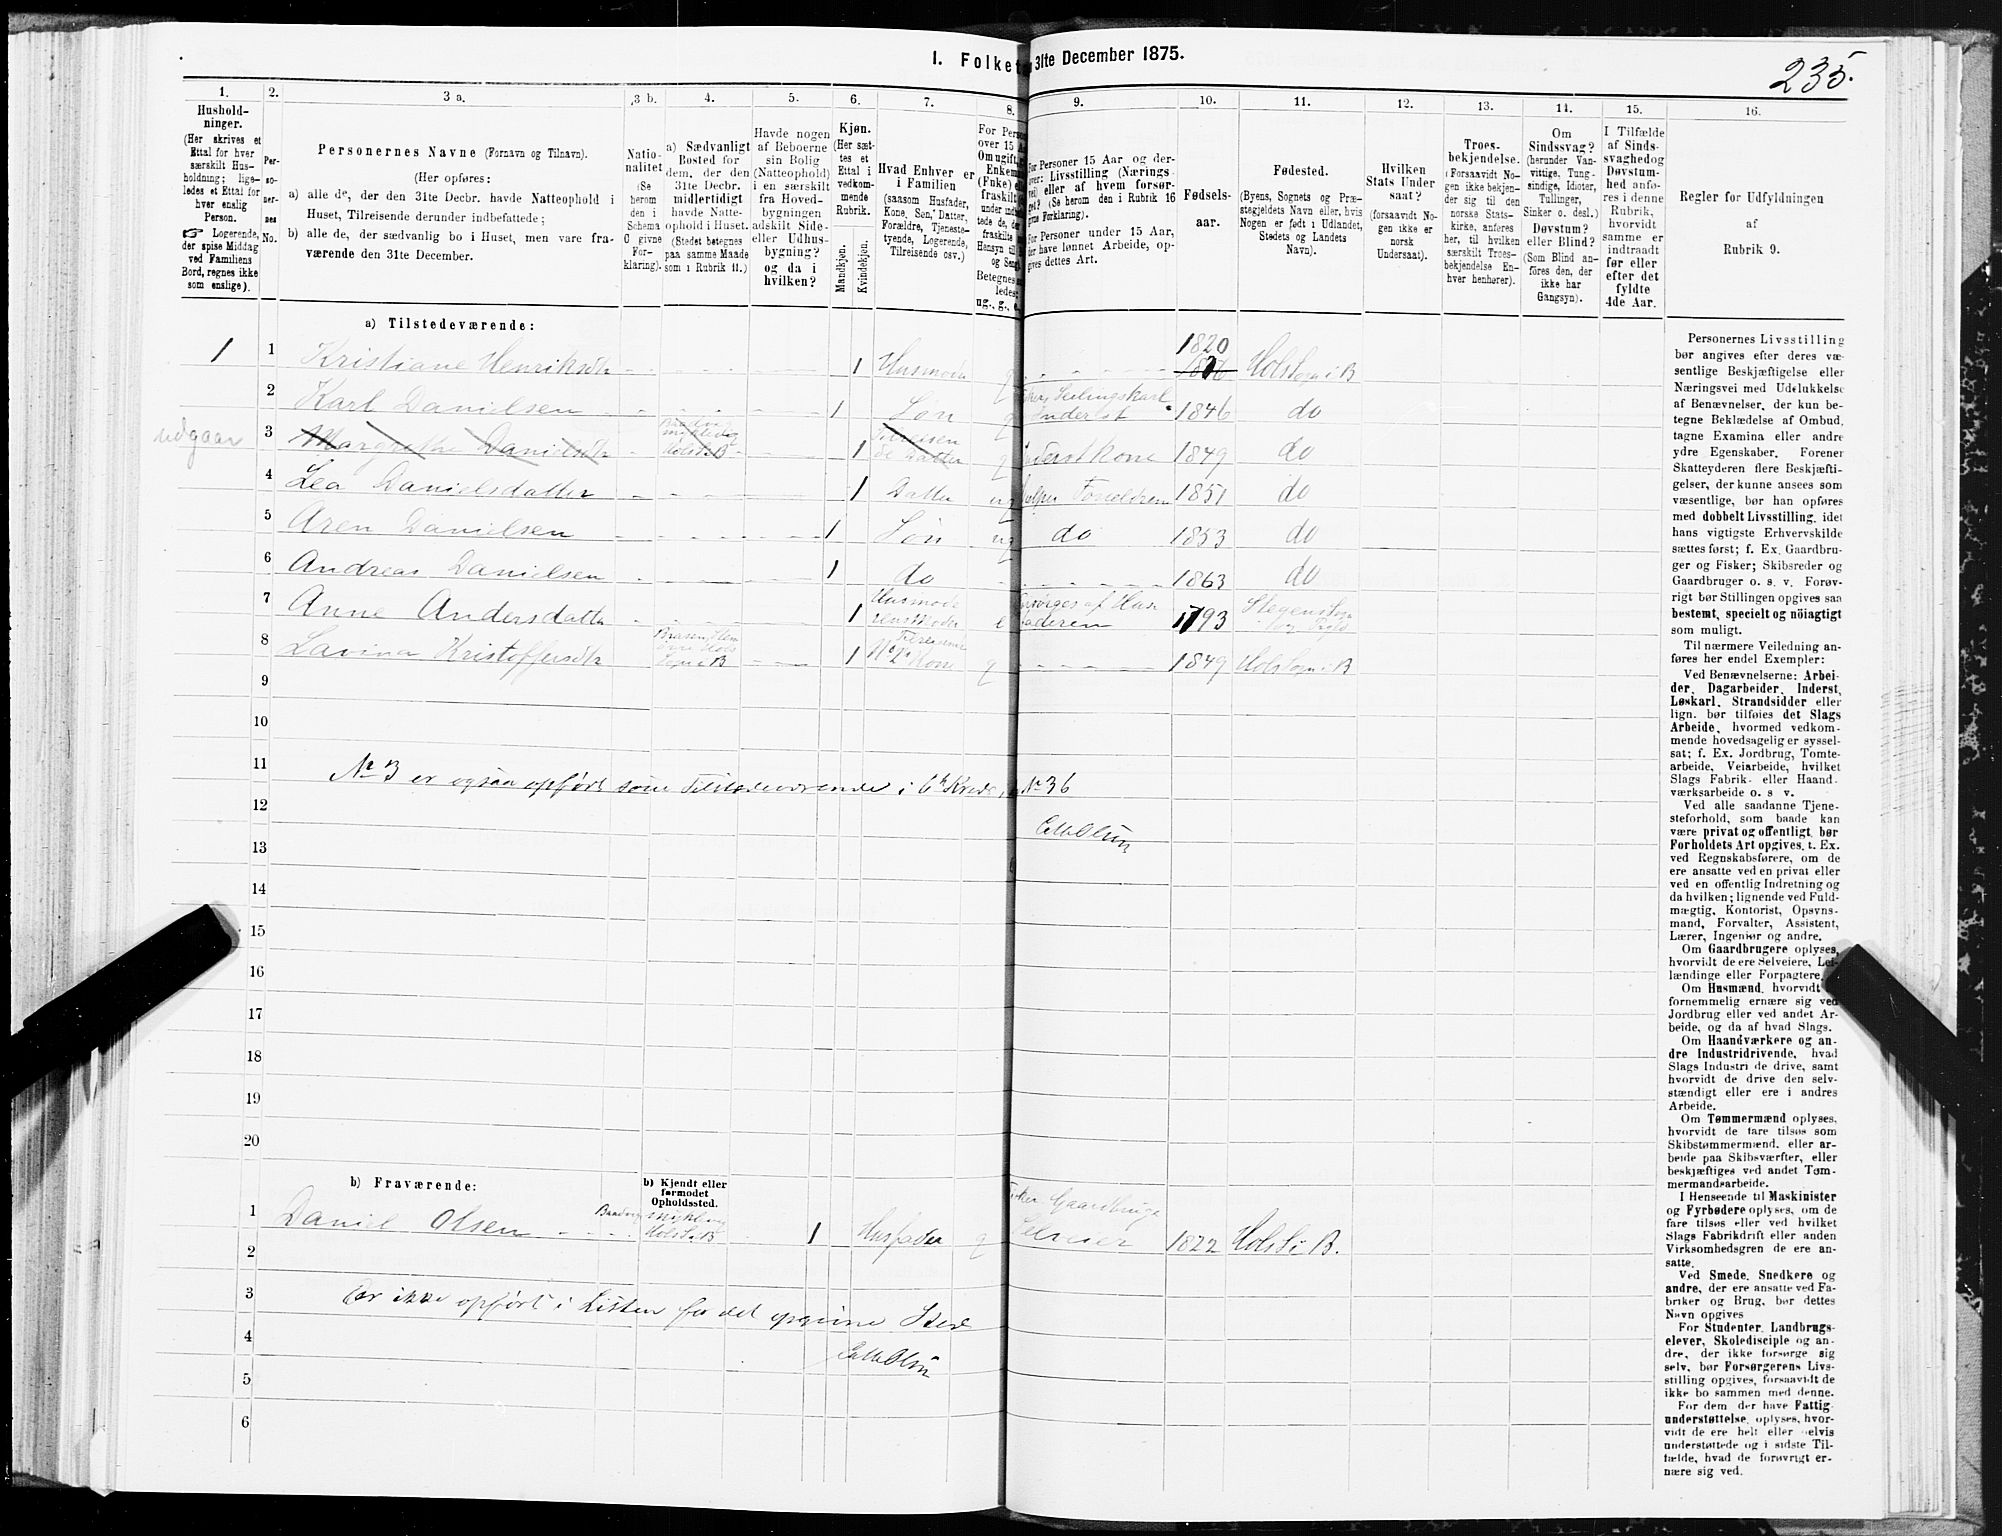 I. Folket
31te December 1875.
235.
1.
Hushold-
ninger.
(Her skrives et
Ettal for hver
særskilt Hus-
holdning; lige-
ledes et Ettal for
hver enslig
Person.
☞ Logerende,
der spise Middag
ved Familiens
Bord, regnes ikke
som enslige).
2.
Per-
so-
ner-
nes
No.
3 a.
Personernes Navne (Fornavn og Tilnavn).
(Her opføres:
a) alle de, der den 31te Decbr. havde Natteophold i
Huset, Tilreisende derunder indbefattede;
b) alle de, der sædvanlig bo i Huset, men vare fra-
værende den 31te December.
3 b.
Natio-
nalitet
(Se
herom
den i
Schema
C givne
For-
klaring).
4.
a) Sædvanligt
Bosted for
dem, der den
31te Decbr.
midlertidigt
havde Natte-
ophold i Huset.
(Stedet betegnes
paa samme Maade
som i Rubrik 11.)
5.
Havde nogen
af Beboerne
sin Bolig
(Natteophold)
i en særskilt
fra Hoved-
bygningen
adskilt Side-
eller Udhus-
bygning?
og da i
hvilken?
6.
Kjøn.
(Her sæt-
tes et
Ettal i
vedkom-
mende
Rubrik.
Mandkjøn.
Kvindekjøn.
7.
Hvad Enhver er
i Familien
(saasom Husfader,
Kone, Søn, Datter,
Forældre, Tjeneste-
tyende, Logerende,
Tilreisende osv.)
8.
For Pers
over 15 A
Omugift,
Enkem
(Fnke) e
fraskilt
9.
For Personer 15 Aar og der-
over: Livsstilling (Nærings
vei) eller af hvem forsør-
get? (Se herom den i Rubrik 16
givne Forklaring).
For Personer under 15 Aar,
der have lønnet Arbeide, op-
gives dettes Art.
10.
Fødsels-
aar.
11.
Fødested.
(Byens, Sognets og Præ-
stegjeldets Navn eller, hvis
Nogen er født i Udlandet,
Stedets og Landets
Navn).
12.
Hvilken
Stats Under
saat?
(forsaavidt No-
gen ikke er
norsk
Undersaat).
13.
Troes-
bekjendelse.
(Forsaavidt No-
gen ikke bekjen-
der sig til den
norske Stats-
kirke, anføres
her, til hvilken
særskilt Troes-
bekjendelse En-
hver henhører).
14.
Om
Sindssvag?
(herunder Van-
vittige, Tung-
sindige, Idioter,
Tullinger,
Sinker o. desl.)
Døvstum?
eller Blind?
(Som Blind an-
føres den, der
ikke har
Gangsyn).
15.
I Tilfælde
af Sinds-
svaghedog
Døvstum-
hed anfø-
res i denne
Rubrik,
hvorvidt
samme er
indtraadt
før eller
efter det
fyldte
4de Aar.
16.
Regler for Udfyldningen
af
Rubrik 9.
a) Tilstedeværende:
1 1 Kristiane Henriksdtr 1 Husmode g 1820 Holsogn i B
2 Karl Danielsen 1 Søn g Inderst 1846 do
udgaar 3 Margrethe Danielsdtr 1 Tilreisen de Datter g Inderstkone 1849 do
4 Lea Danielsdatter 1 Datter ug 1851 do
5 Aren Danielsen 1 Søn ug do 1853 do
6 Andreas Danielsen 1 do 1863 do
7 Anne Andersdatter 1 Husmode rens Moder e Forsørges af Hus faderen 1793
8 Lavina Kristoffersdtr 1 Kone g 1849 Holsogn i B
9
10
11
No 3 er ogsaa opført som Tilstedeværende i 6te Kreds, No 36
12
13
14
15
16
17
18
19
20
b) Fraværende:
b) Kjendt eller
formodet
Opholdssted.
1 Daniel Olsen 1 Husfader g Fisker Gaardbruger Selveier 1822 Hols i B.
2
3
Er ikke opført i Listen for det opgivne Sted
4
5
6
Personernes Livsstilling
bør angives efter deres væ-
sentlige Beskjæftigelse eller
Næringsvei med Udelukkelse
af Benævnelser, der kun be-
tegne Beklædelse af Ombud,
tagne Examina eller andre
ydre Egenskaber. Forener
Skatteyderen flere Beskjæfti-
gelser, der kunne ansees som
væsentlige, bør han opføres
med dobbelt Livsstilling, idet
hans vigtigste Erhvervskilde
sættes først; f. Ex. Gaardbru-
ger og Fisker; Skibsreder og
Gaardbruger o. s. v. Forøv-
rigt bør Stillingen opgives saa
bestemt, specielt og nöiagtigt
som muligt.
Til nærmere Veiledning an-
føres her endel Exempler:
Ved Benævnelserne: Arbei-
der, Dagarbeider, Inderst,
Løskarl, Strandsidder eller
lign. bør tilføies det Slags
Arbeide, hvormed vedkom-
mende hovedsagelig er syssel-
sat; f. Ex. Jordbrug, Tomte-
arbeide, Veiarbeide, hvilket
Slags Fabrik- eller Haand-
værksarbeide o. s. v.
Ved alle saadanne Tjene-
steforhold, som baade kan
være privat og offentligt, bør
Forholdets Art opgives, t. Ex.
ved Regnskabsførere, om de
ere ansatte ved en privat eller
ved en offentlig Indretning og
da hvilken; lignende ved Fuld-
mægtig, Kontorist, Opsyns-
mand, Forvalter, Assistent,
Lærer, Ingeniør og andre.
Om Gaardbrugere oplyses,
hvorvidt de ere Selveiere, Lei-
lændinge eller Forpagtere.
Om Husmænd, hvorvidt
fornemmelig ernære sig ved
Jordbrug eller ved andet Ar-
beide, og da af hvad Slags.
Om Haandværkere og an-
dre Industridrivende, hvad
Slags Industri de drive, samt
hvorvidt de drive den selv-
stændigt eller ere i andres
Arbeide.
Om Tømmermænd oplyses,
hvorvidt de fare tilsøs som
Skibstømmermænd, eller ar-
beide paa Skibsværfter, eller
beskjæftiges ved andet Tøm-
mermandsarbeide.
I Henseende til Maskinister
og Fyrbødere oplyses, om de
fare tilsøs eller ved hvilket
Slags Fabrikdrift eller anden
Virksomhedsgren de ere an-
satte.
Ved Smede, Snedkere og
andre, der ere ansatte ved Fa-
briker og Brug, bør dettes
Navn opgives
For Studenter, Landbrugs-
elever, Skoledisciple og an-
dre, der ikke forsørge sig
selv, bør Forsørgerens Livs-
stilling opgives, forsaavidt de
ikke bo sammen med denne.
For dem, der have Fattig-
understøttelse, oplyses, hvor-
vidt de ere helt eller delvis
understøttede og i sidste Til-
fælde, hvad de forøvrigt er-
nære sig ved.